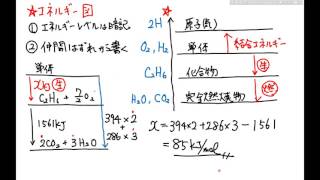 ★エネルギー図
① エネルギーレベルは暗記
② 仲間はずれから書く
単体
xkJ 生
C₂H₆ + 7/2 O₂
1561kJ
2CO₂ + 3H₂O
394×2
+
286×3
★
2H 原子(気)
結合エネルギー
O₂, H₂ 単体
生
C₂H₆ 化合物
燃
H₂O, CO₂ 完全燃焼物
x = 394×2+286×3−1561
= 85kJ/mol